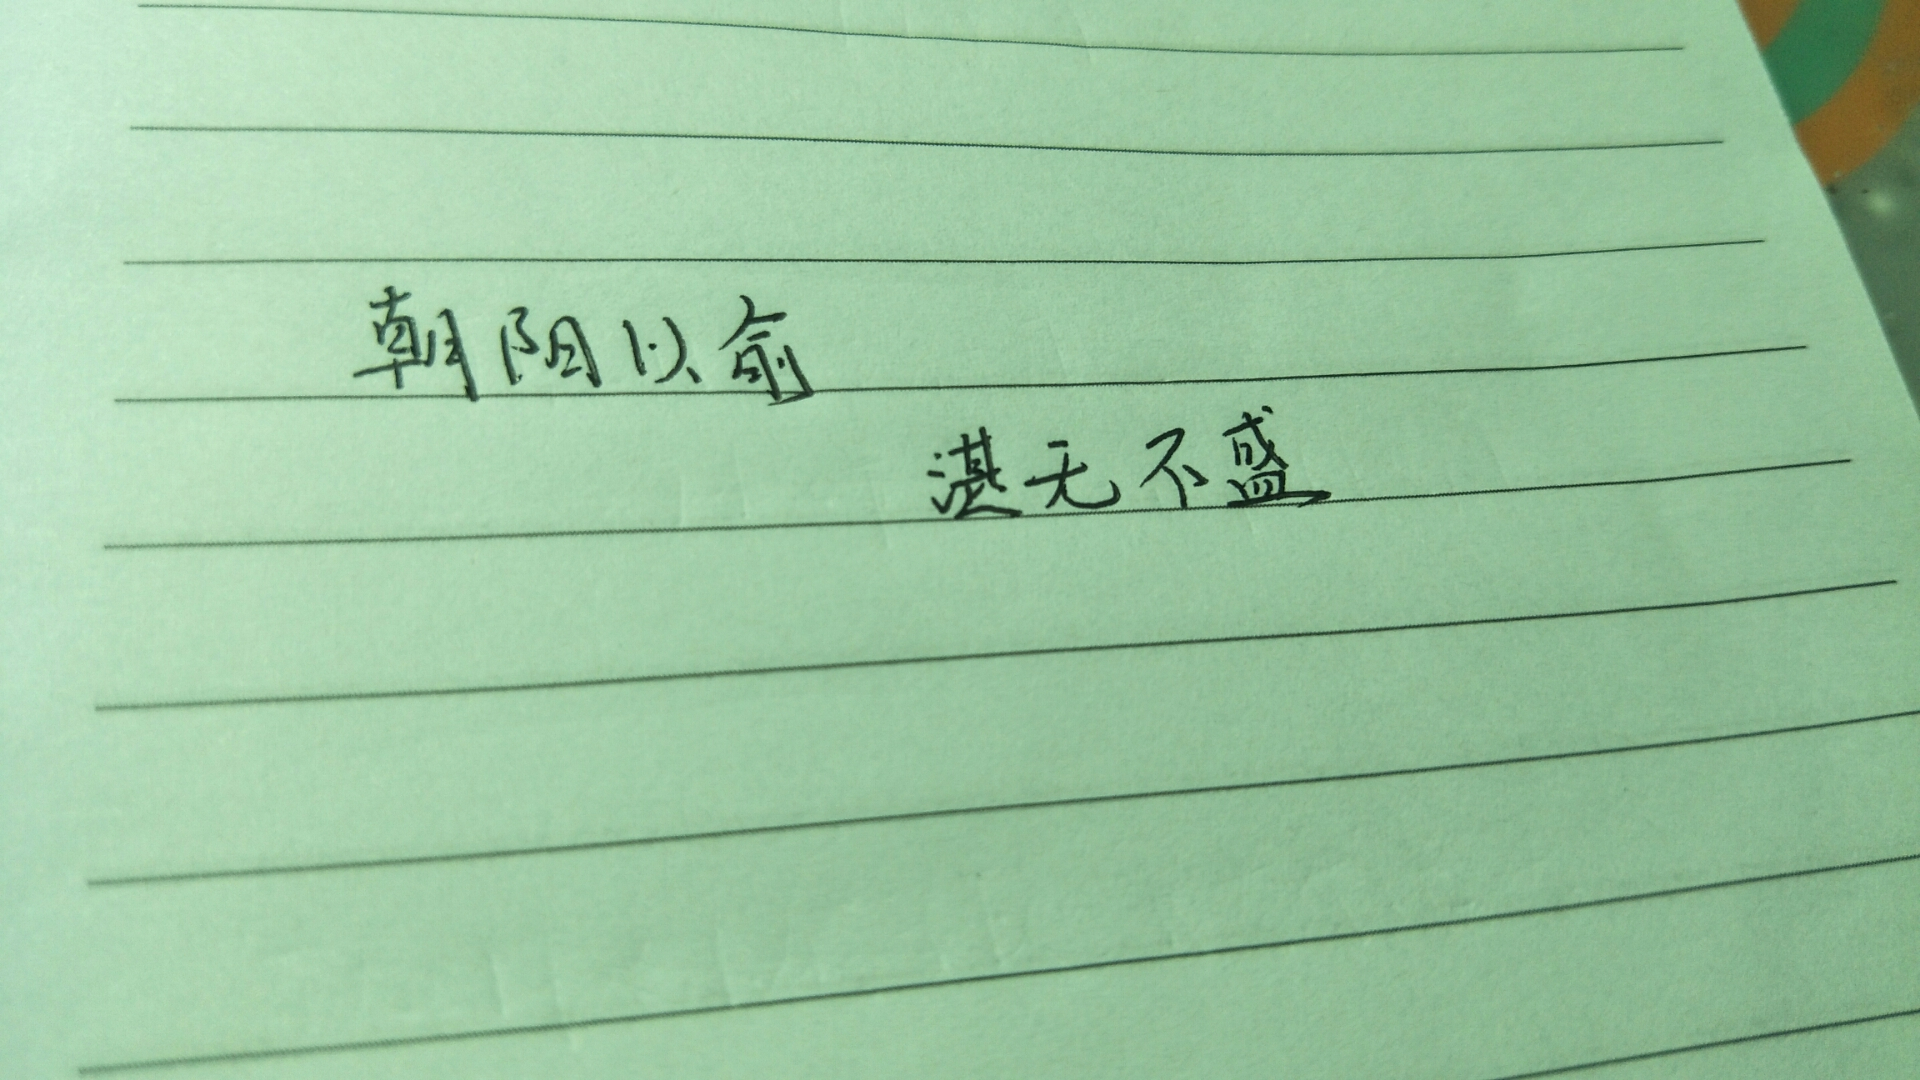 朝阳以俞
湛无不盛